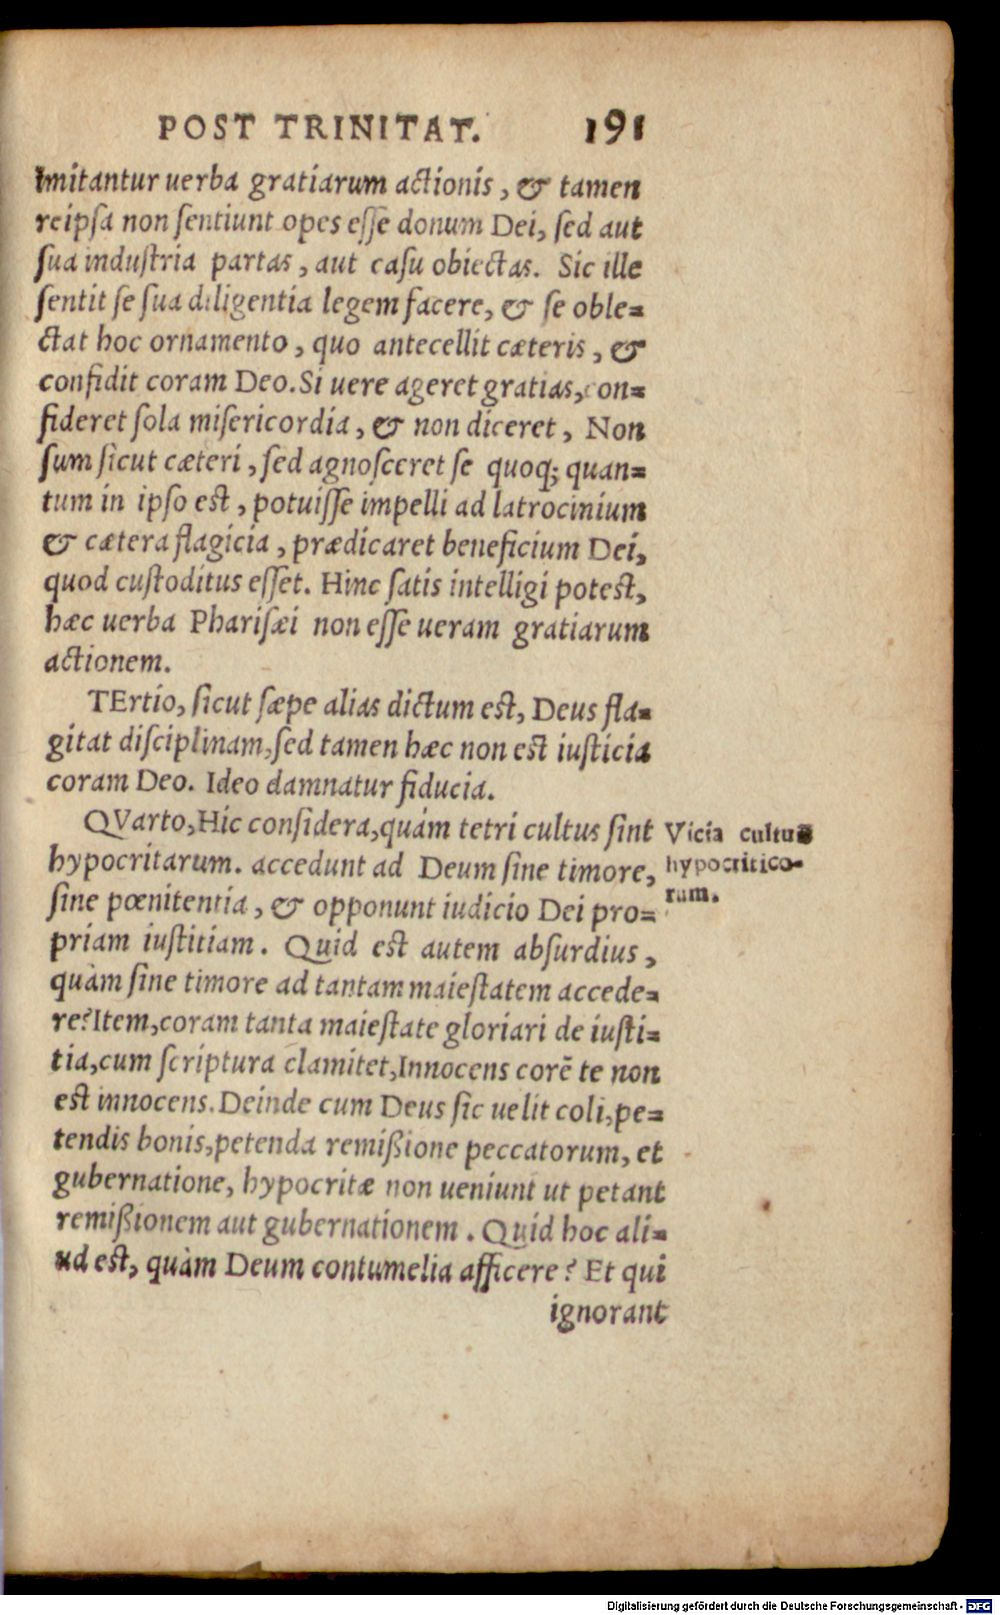 POST TRINITAT. 191
imitantur uerba gratiarum actionis, & tamen
reipsa non sentiunt opes esse donum Dei, sed aut
sua industria partas, aut casu obiectas. Sic ille
sentit se sua diligentia legem facere, & se oble=
ctat hoc ornamento, quo antecellit cæteris, &
confidit coram Deo. Si uere ageret gratias, con=
fideret sola misericordia, & non diceret, Non
sum sicut cæteri, sed agnosceret se quoq; quan=
tum in ipso est, potuisse impelli ad latrocinium
& cætera flagicia, prædicaret beneficium Dei,
quod custoditus esset. Hinc satis intelligi potest,
hæc uerba Pharisæi non esse ueram gratiarum
actionem.
TErtio, sicut sæpe alias dictum est, Deus fla=
gitat disciplinam, sed tamen hæc non est iusticia
coram Deo. Ideo damnatur fiducia.
QVarto, Hic considera, quám tetri cultus sint
hypocritarum. accedunt ad Deum sine timore,
sine pœnitentia, & opponunt iudicio Dei pro=
priam iustitiam. Quid est autem absurdius,
quàm sine timore ad tantam maiestatem accede=
re? Item, coram tanta maiestate gloriari de iusti=
tia, cum scriptura clamitet, Innocens corē te non
est innocens. Deinde cum Deus sic uelit coli, pe=
tendis bonis, petenda remißione peccatorum, et
gubernatione, hypocritæ non ueniunt ut petant
remißionem aut gubernationem. Quid hoc ali=
ud est, quàm Deum contumelia afficere? Et qui
ignorant
Vicia cultus
hypocritico=
rum.
Digitalisierung gefördert durch die Deutsche Forschungsgemeinschaft - DFG